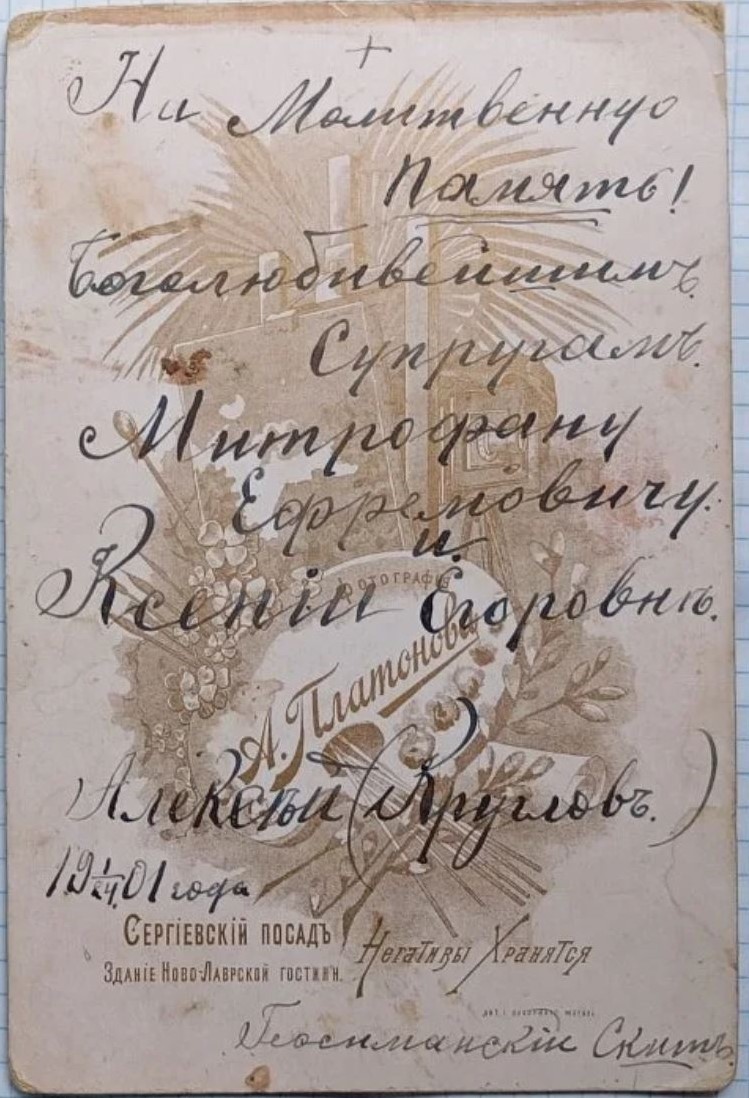 На Молитвенную
Память!
Боголюбивейшимъ
Супругамъ.
Митрофану
Ефремовичу.
и.
Ксеніи Егоровнѣ.
Фотографія
А. Платонова
Алексѣй (Кругловъ.)
19 1/IV. 01 года
Сергіевскій посадъ
Негативы Хранятся
Зданіе Ново-Лаврской гостинн.
Геѳсиманскій Скитъ.